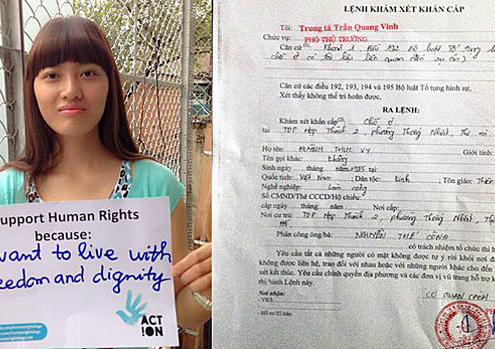 Support Human Rights
because:
want to live with
freedom and dignity
ACT
!ON
LỆNH KHÁM XÉT KHẨN CẤP
Tôi: Trung tá Trần Quang Vinh
Chức vụ: PHÓ THỦ TRƯỞNG
Căn cứ
Căn cứ các điều 192, 193, 194 và 195 Bộ luật Tố tụng hình sự,
Xét thấy không thể trì hoãn được.
RA LỆNH:
Khám xét khẩn cấp Chỗ ở
tại TDP Hợp Thành 2, phường Thống Nhất, Thị xã
Họ tên: HUỲNH THỤC VY Giới tính:
Tên gọi khác: Không
Sinh ngày tháng năm 1985 tại
Quốc tịch: Việt Nam; Dân tộc: Kinh; Tôn giáo:
Nghề nghiệp:
Số CMND/Thẻ CCCD/Hộ chiếu:
cấp ngày tháng năm Nơi cấp:
Nơi cư trú: TDP Hợp Thành 2, phường Thống Nhất,
Phân công ông/bà: NGUYỄN THẾ CÔNG
có trách nhiệm tổ chức thi h
Yêu cầu tất cả những người có mặt không được tự ý rời khỏi nơi đ
không được liên hệ, trao đổi với nhau hoặc với những người khác cho đến
xét kết thúc. Yêu cầu chính quyền địa phương và các đơn vị vũ trang hỗ trợ
thi hành Lệnh này.
Nơi nhận:
- VKS
- Hồ sơ 02 bản.
CƠ QUAN CSĐT